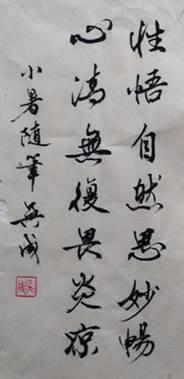 性悟自然思妙暢
心清無復畏炎凉
小暑随筆 吳成